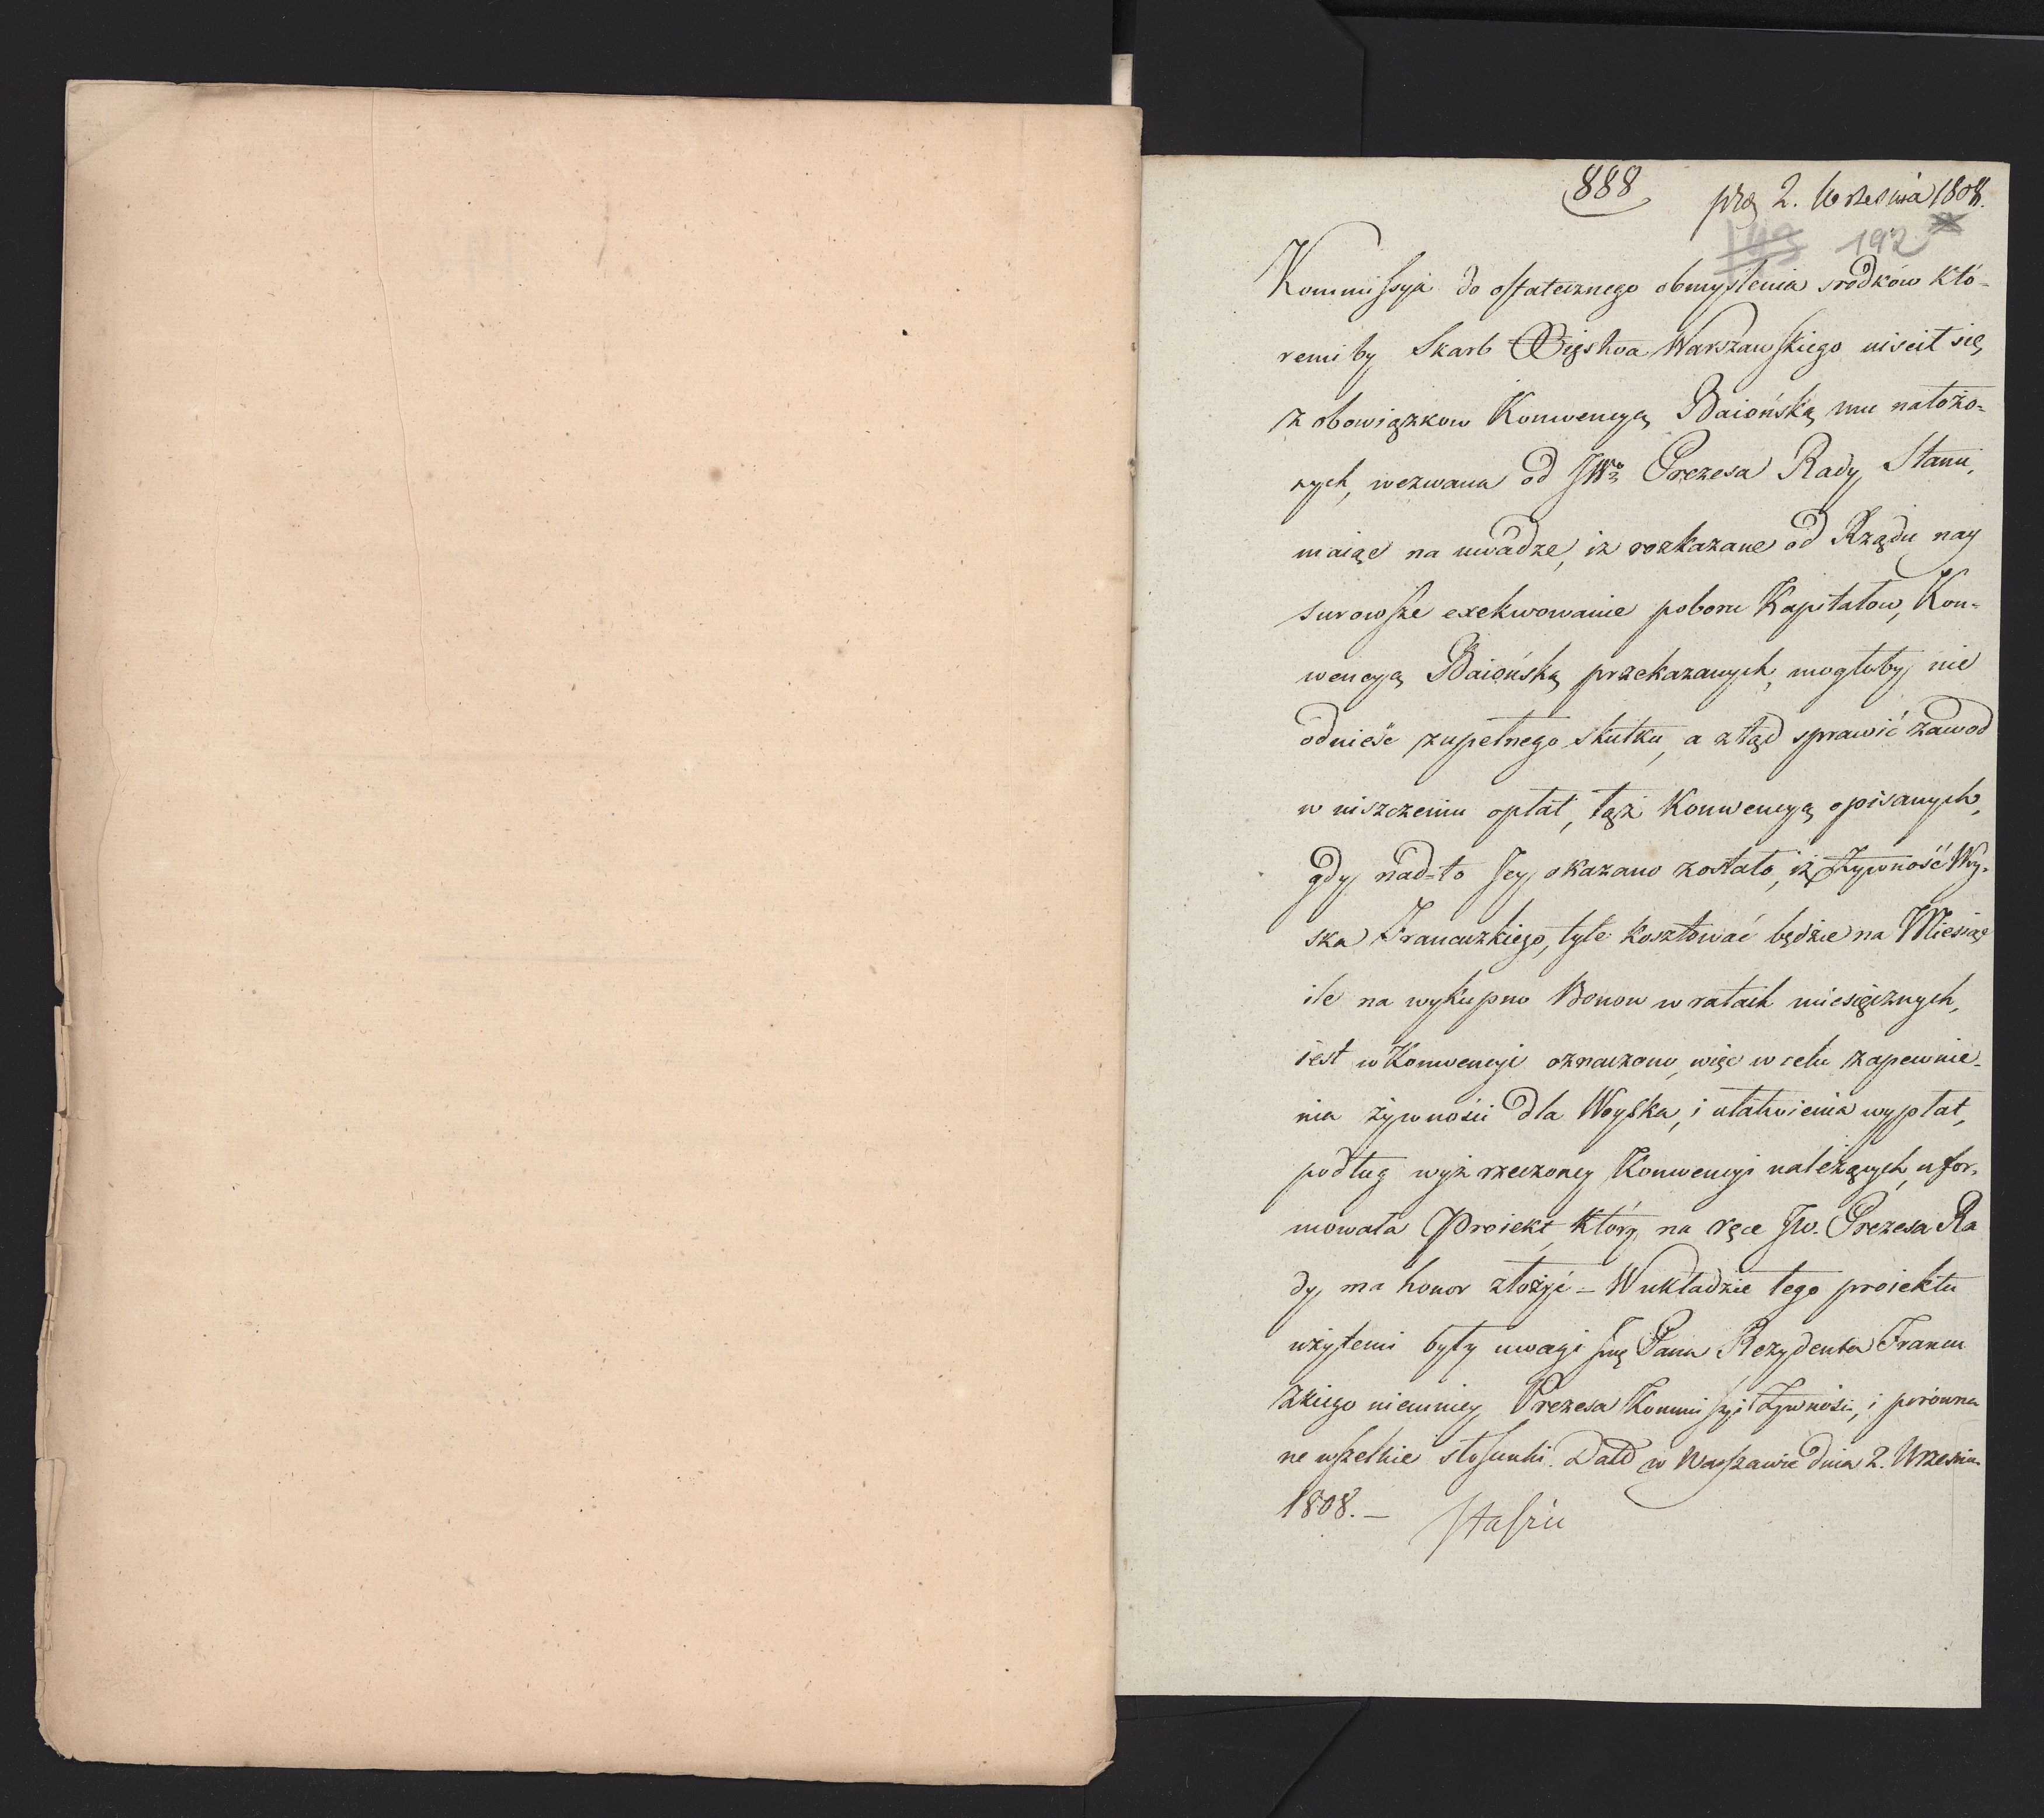 888
prą 2. Września 1808.
149 192
Kommissyja do ostatecznego obmyślenia srodków któ-
remi by Skarb Xięstwa Warszawskiego uiścił się,
z obowiązkow Konwencyą Baiońską mu nałożo=
nych, wezwana od JWo Prezesa Rady Stanu,
maiąc na uwadze, iż rozkazane od Rządu nay
surowsze exekwowanie poboru Kapitałow, Kon=
wencyą Baiońską przekazanych, mogłoby nie
odnieść zupełnego skutku, a ztąd sprawić zawod
w niszczeniu opłat, tąż Konwencyą opisanych,
gdy nad=to Jey okazano zostało, iż Żywność Woy-
ska Francuzkiego, tyle kosztować będzie na Miesiąc
ile na wykupno Bonow w ratach miesięcznych,
iest w Konwencyi oznaczono, więc w celu zapewnie-
nia żywności dla Woyska, i ułatwienia wypłat,
podług wyż rzeczoney Konwencyi należących, ufor-
mowała Proiekt, który na ręce JW. Prezesa Ra
dy ma honor złożyć – W układzie tego proiektu
użytemi były uwagi Pana Rezydenta Francu
zkiego niemniey Prezesa Kommissyi Żywności, i porówna
ne wszelkie stosunki. Datd w Warszawie dnia 2. Września
1808. – Staszic